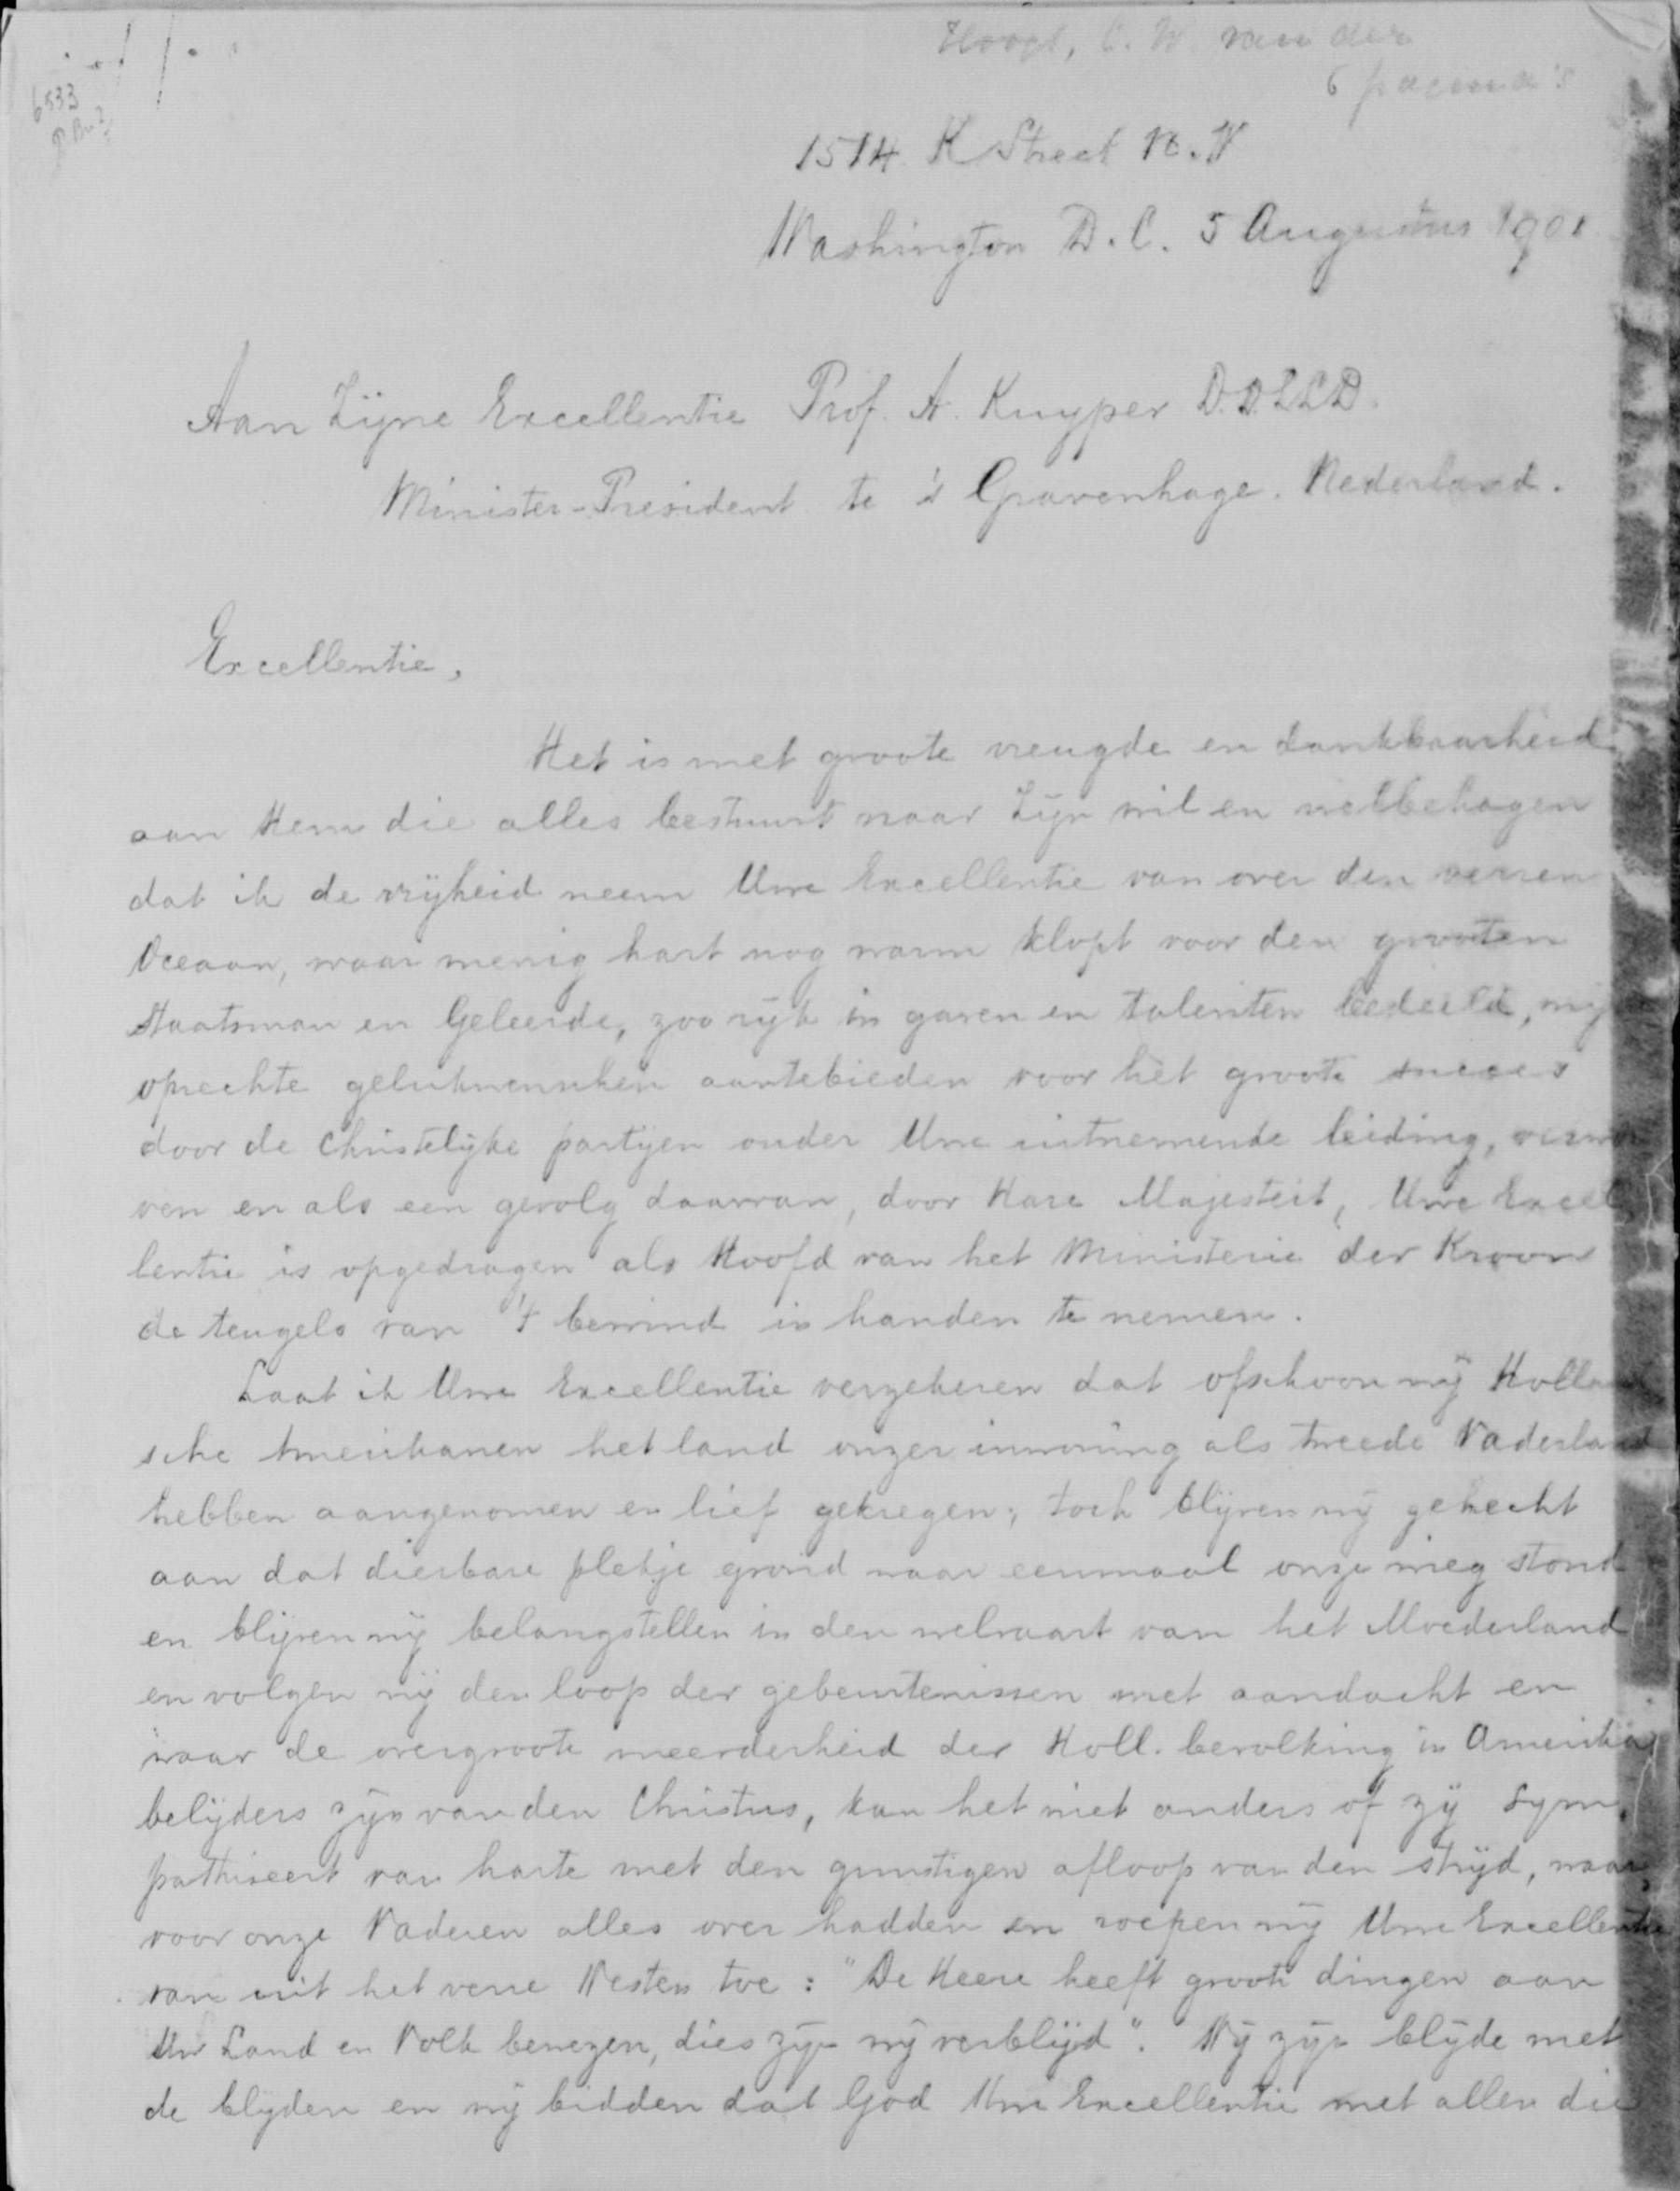 Hoogt, C. W. van der
6 pagina's
6533
1514 K Street N.W
Washington D.C. 5 Augustus 1901
Aan Zijne Excellentie Prof. A. Kuyper D.D.LLD.
Minister-President te 's Gravenhage. Nederland.
Excellentie,
Het is met groote vreugde en dankbaarheid
aan Hem die alles bestuurt naar Zijn wil en welbehagen
dat ik de vrijheid neem Uwe Excellentie van over den verren
Oceaan, waar menig hart nog warm klopt voor den grooten
Staatsman en Geleerde, zoo rijk in gaven en talenten bedeeld, mijn
oprechte gelukwenschen aantebieden voor het groote succes
door de Christelijke partijen onder Uwe uitnemende leiding, verwor
ven en als een gevolg daarvan, door Hare Majesteit, Uwe Excel
lentie is opgedragen als Hoofd van het Ministerie der Kroon
de teugels van 't bewind in handen te nemen.
Laat ik Uwe Excellentie verzekeren dat ofschoon wij Holland
sche Amerikanen het land onzer inwoning als tweede Vaderland
hebben aangenomen en lief gekregen; toch blijven wij gehecht
aan dat dierbare plekje grond waar eenmaal onze wieg stond
en blijven wij belangstellen in den welvaart van het Moederland
en volgen wij den loop der gebeurtenissen met aandacht en
waar de overgroote meerderheid der Holl. bevolking in Amerika
belijders zijn van den Christus, kan het niet anders of zij sym
pathiseert van harte met den gunstigen afloop van den strijd, waar
voor onze Vaderen alles over hadden en roepen wij Uwe Excellentie
van uit het verre Westen toe: "De Heere heeft groote dingen aan
Uw Land en Volk bewezen, dies zijn wij verblijd". Wij zijn blijde met
de blijden en wij bidden dat God Uwe Excellentie met allen die